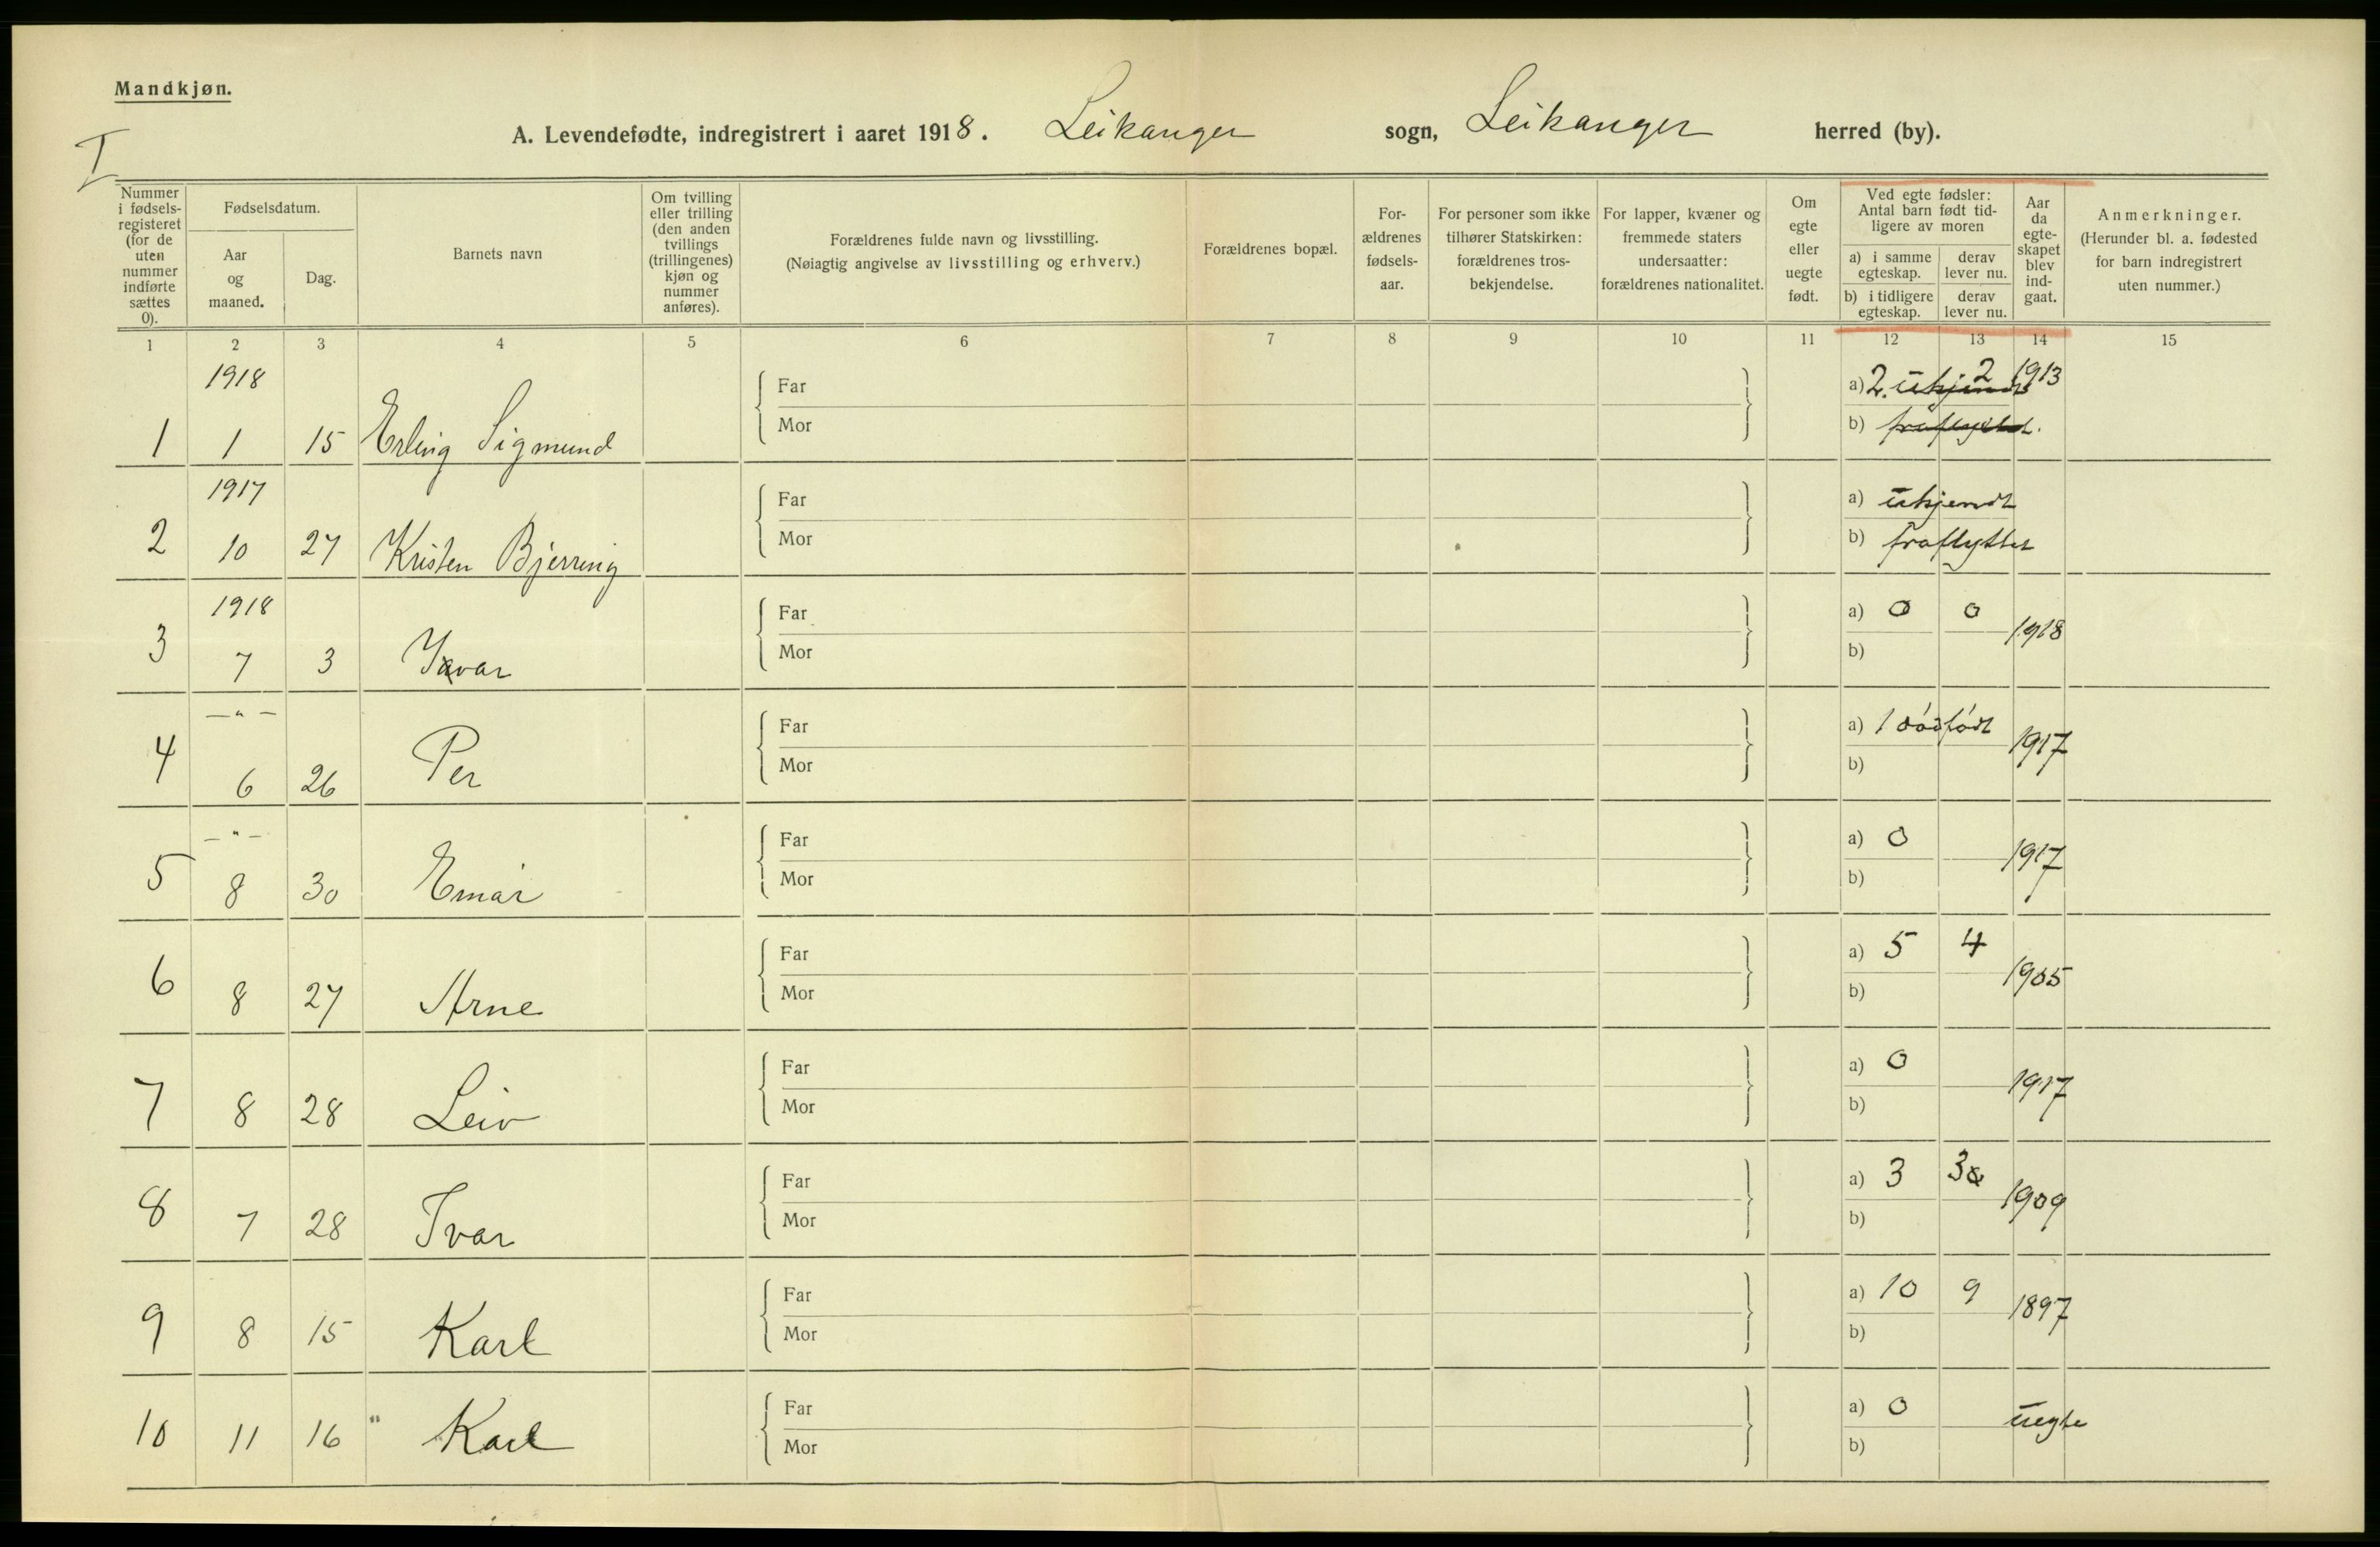 Mandkjøn.
I
A. Levendefødte, indregistrert i aaret 1918. Leikanger sogn, Leikanger herred (by).
Nummer i fødsels-registeret (for de uten nummer indførte sættes 0).
Fødselsdatum.
Aar og maaned.
Dag.
Barnets navn
Om tvilling eller trilling (den anden tvillings (trillingenes) kjøn og nummer anføres).
Forældrenes fulde navn og livsstilling.
(Nøiagtig angivelse av livsstilling og erhverv.)
Forældrenes bopæl.
For-ældrenes fødsels-aar.
For personer som ikke tilhører Statskirken: forældrenes tros-bekjendelse.
For lapper, kvæner og fremmede staters undersaatter: forældrenes nationalitet.
Om egte eller uegte født.
Ved egte fødsler: Antal barn født tid-ligere av moren
a) i samme egteskap.
derav lever nu.
b) i tidligere egteskap.
derav lever nu.
Aar da egte-skapet blev ind-gaat.
Anmerkninger.
(Herunder bl. a. fødested for barn indregistrert uten nummer.)
1 2 3 4 5 6 7 8 9 10 11 12 13 14 15
1918 Far a) 2. ukjendt 2 1913
1 1 15 Erling Sigmund Mor b) fraflyttet.
1917 Far a) ukjendt
2 10 27 Kristen Bjerring Mor b) fraflyttet
1918 Far a) 0 0 1918
3 7 3 Ivar Mor b)
—"— Far a) 1 dødfødt 1917
4 6 26 Per Mor b)
—"— Far a) 0 1917
5 8 30 Einar Mor b)
Far a) 5 4 1905
6 8 27 Arne Mor b)
Far a) 0 1917
7 8 28 Leiv Mor b)
Far a) 3 3 1909
8 7 28 Ivar Mor b)
Far a) 10 9 1897
9 8 15 Karl Mor b)
Far a) 0 uegte
10 11 16 " Karl Mor b)